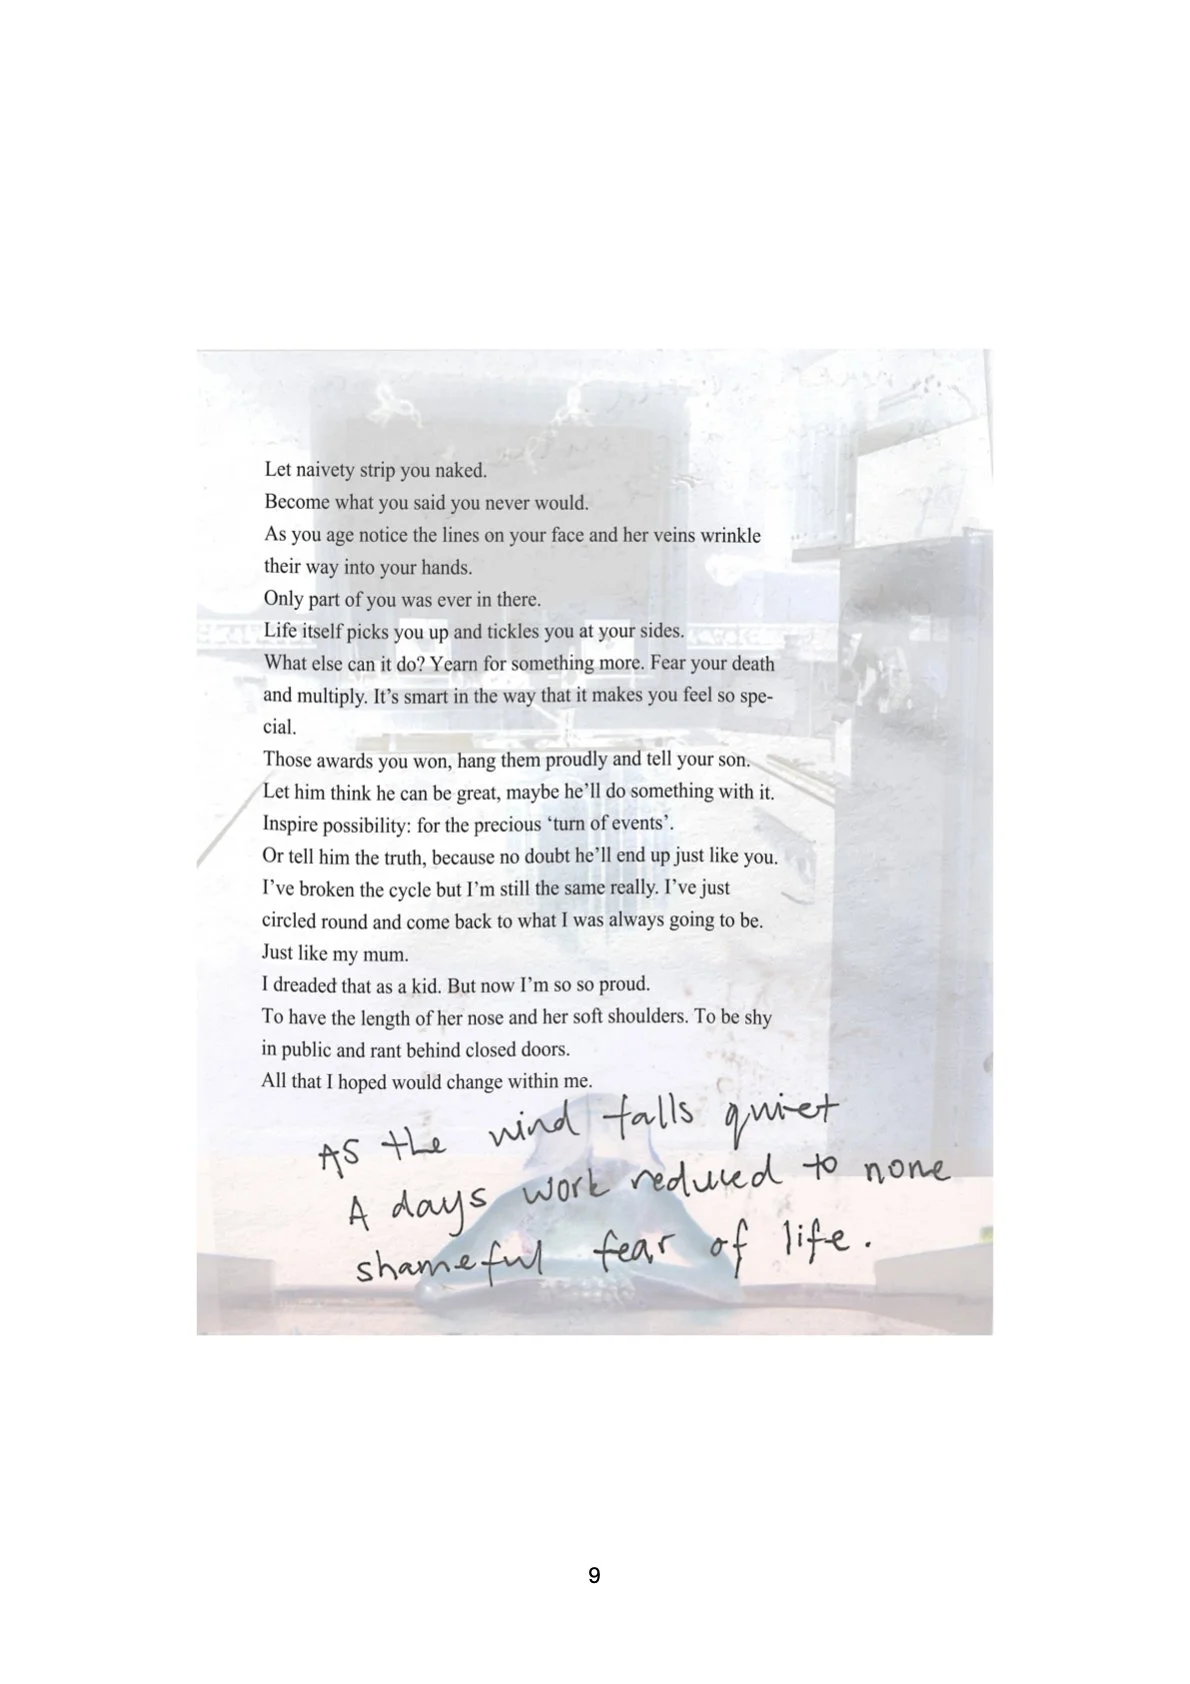 Let naivety strip you naked.
Become what you said you never would.
As you age notice the lines on your face and her veins wrinkle
their way into your hands.
Only part of you was ever in there.
Life itself picks you up and tickles you at your sides.
What else can it do? Yearn for something more. Fear your death
and multiply. It’s smart in the way that it makes you feel so spe-
cial.
Those awards you won, hang them proudly and tell your son.
Let him think he can be great, maybe he’ll do something with it.
Inspire possibility: for the precious ‘turn of events’.
Or tell him the truth, because no doubt he’ll end up just like you.
I’ve broken the cycle but I’m still the same really. I’ve just
circled round and come back to what I was always going to be.
Just like my mum.
I dreaded that as a kid. But now I’m so so proud.
To have the length of her nose and her soft shoulders. To be shy
in public and rant behind closed doors.
All that I hoped would change within me.
As the wind falls quiet
A days work reduced to none
shameful fear of life.
9